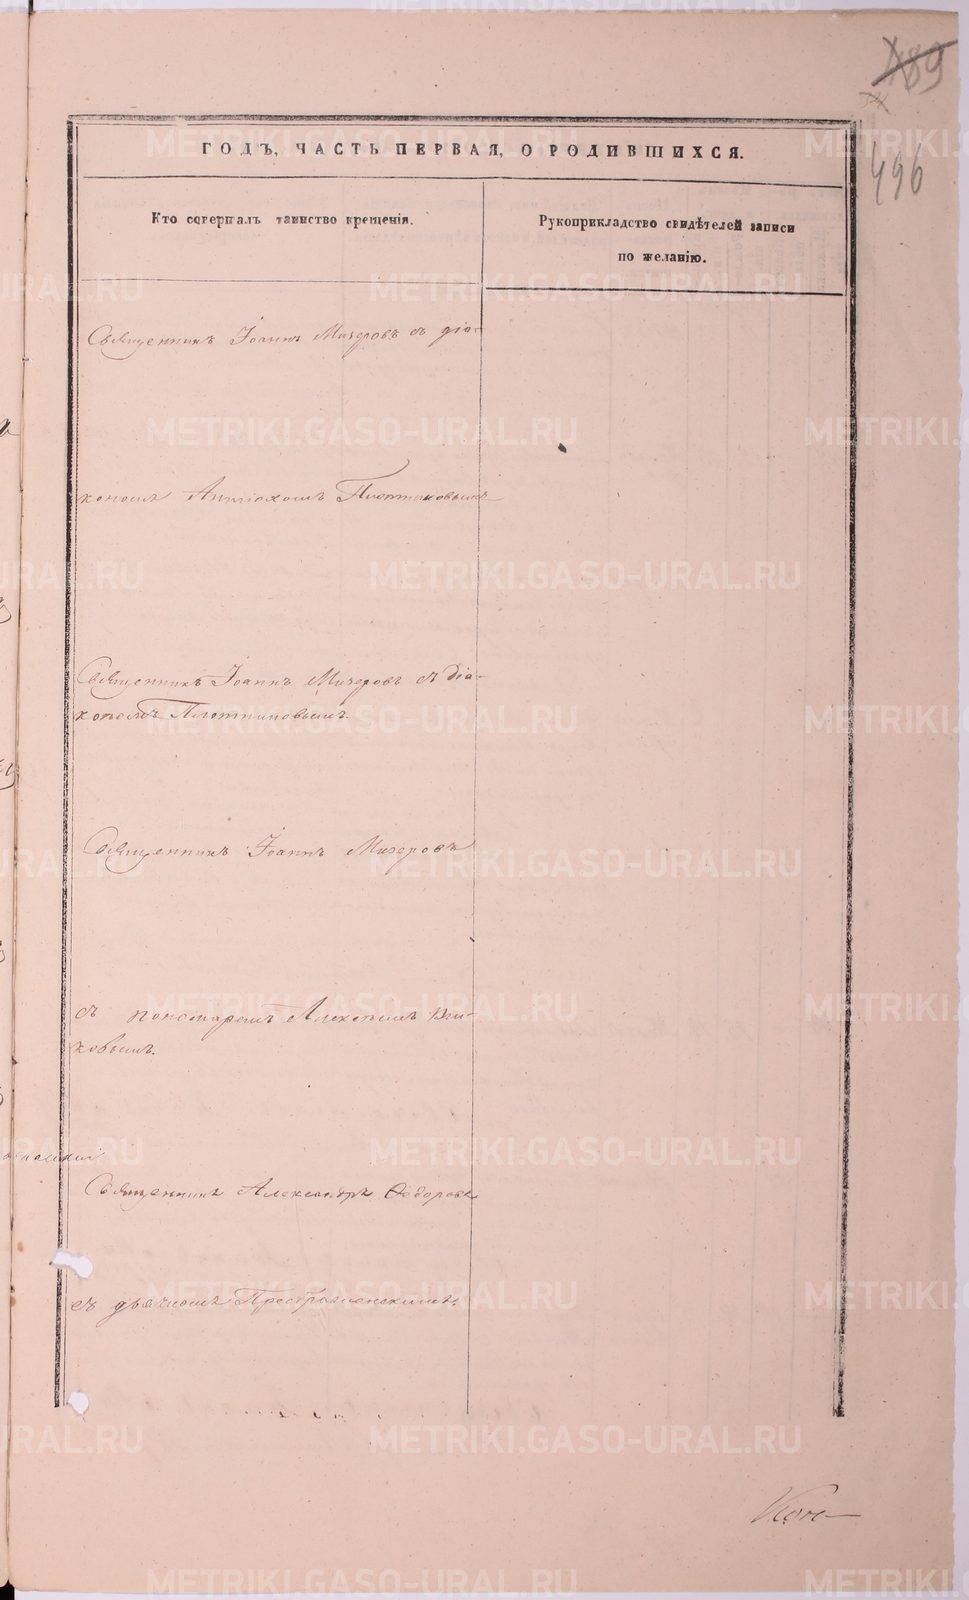 489
496
ГОДЪ, ЧАСТЬ ПЕРВАЯ, О РОДИВШИХСЯ.
Кто совершалъ таинство крещенія.
Рукоприкладство свидѣтелей записи
по желанію.
Священникъ Іоаннъ Мизеровъ съ діа-
кономъ Антіохомъ Плотниковымъ
Священникъ Іоаннъ Мизеровъ съ діа-
кономъ Плотниковымъ.
Священникъ Іоаннъ Мизеровъ
съ пономаремъ Алексѣемъ
ковымъ.
Священникъ Александръ Ѳедоровъ
съ дьячкомъ
METRIKI.GASO-URAL.RU